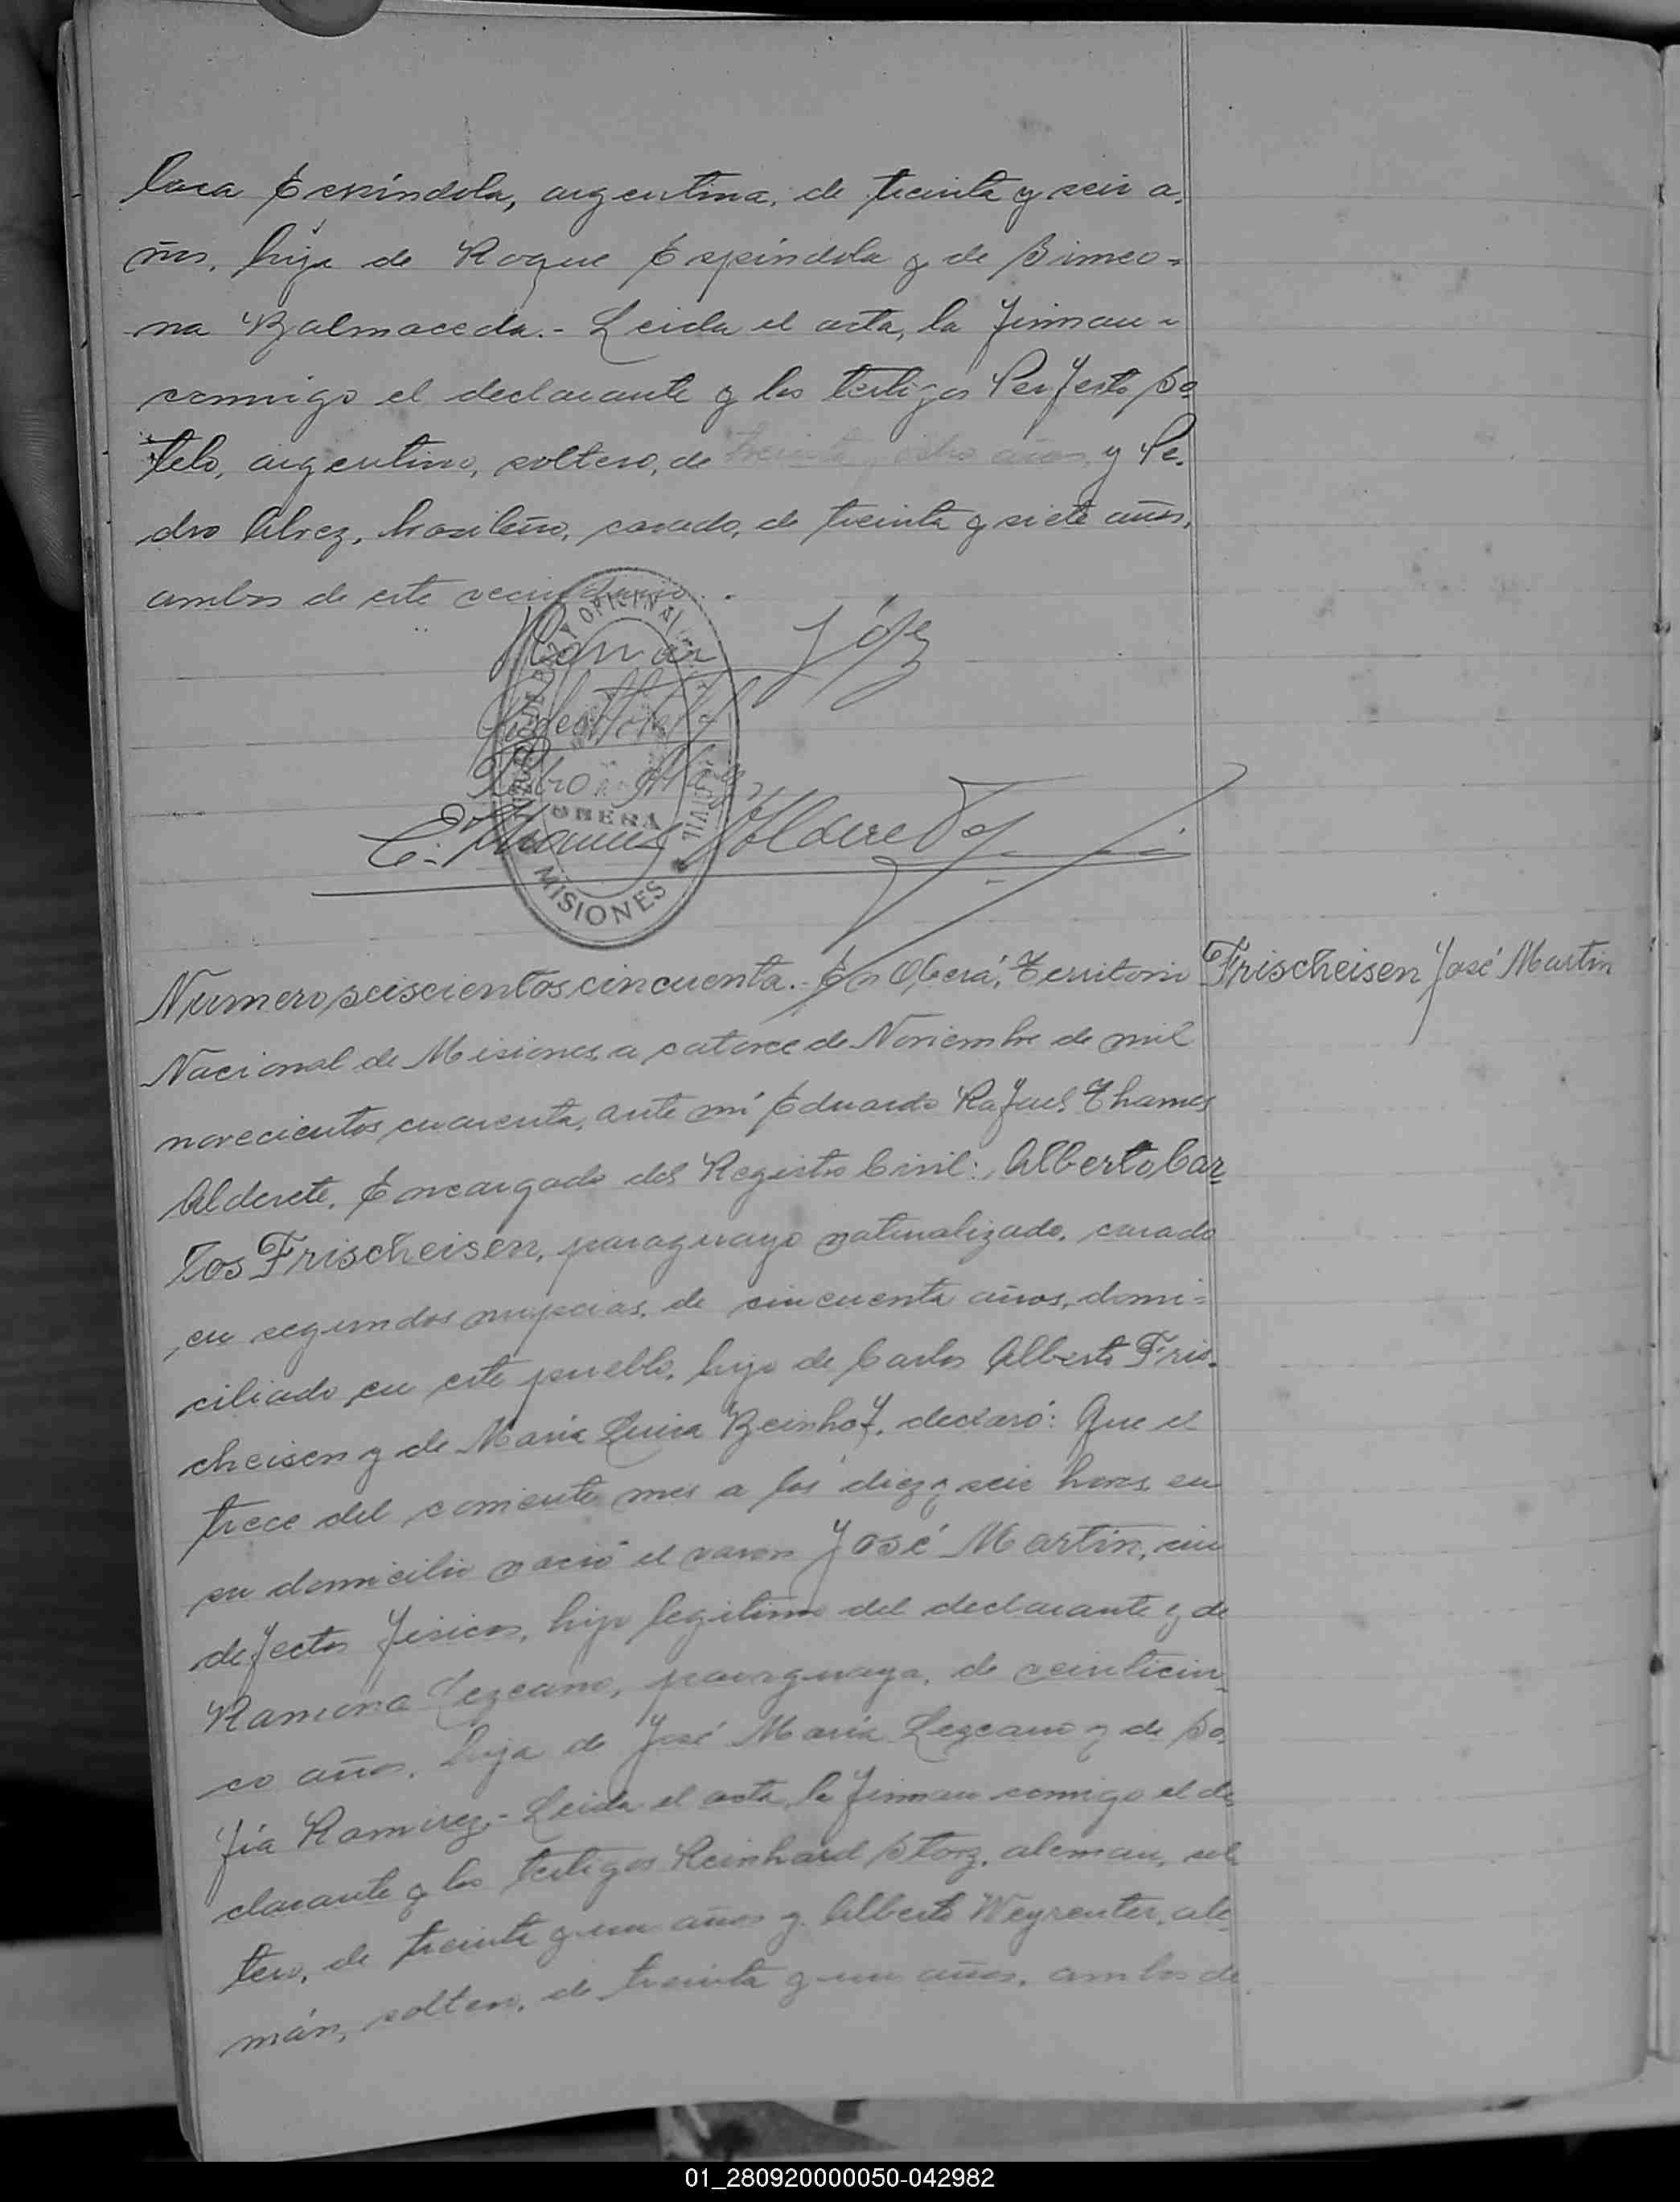 Espíndola, argentina, de treinta y seis a-
ños, hija de Roque Espíndola y de Simeo=
na Balmaceda.- Leida el acta, la firman
conmigo el declarante y los testigos Perfecto So
telo, argentino, soltero, de treinta y ocho años y Pe-
dro Alvez, brasileño, casado, de treinta y siete años,
ambos de este vecindario.
OFICINA
CIVIL
OBERA
MISIONES
Numero seiscientos cincuenta.- En Oberá, Territorio
Frischeisen José Martin
Nacional de Misiones, a catorce de Noviembre de mil
novecientos cuarenta, ante mí Eduardo Rafael Thames
Alderete, Encargado del Registro Civil: Alberto Car
los Frischeisen, paraguayo naturalizado, casado
en segundas nupcias, de cincuenta años, domi=
ciliado en este pueblo, hijo de Carlos Alberto Fris-
cheisen y de María Luisa Beinhof, declaró: Que el
trece del corriente mes a las diez y seis horas, en
su domicilio nació el varon José Martin, sin
defectos fisicos, hijo legitimo del declarante y de
Ramona Lezcano, paraguaya, de veinticin-
co años, hija de José María Lezcano y de So-
fía Ramirez.- Leida el acta, la firman conmigo el de
clarante y los testigos Reinhard Storz, aleman, sol
tero, de treinta y un años y Alberto Weyreuter, ale
mán, soltero, de treinta y un años, ambos de
01_280920000050-042982